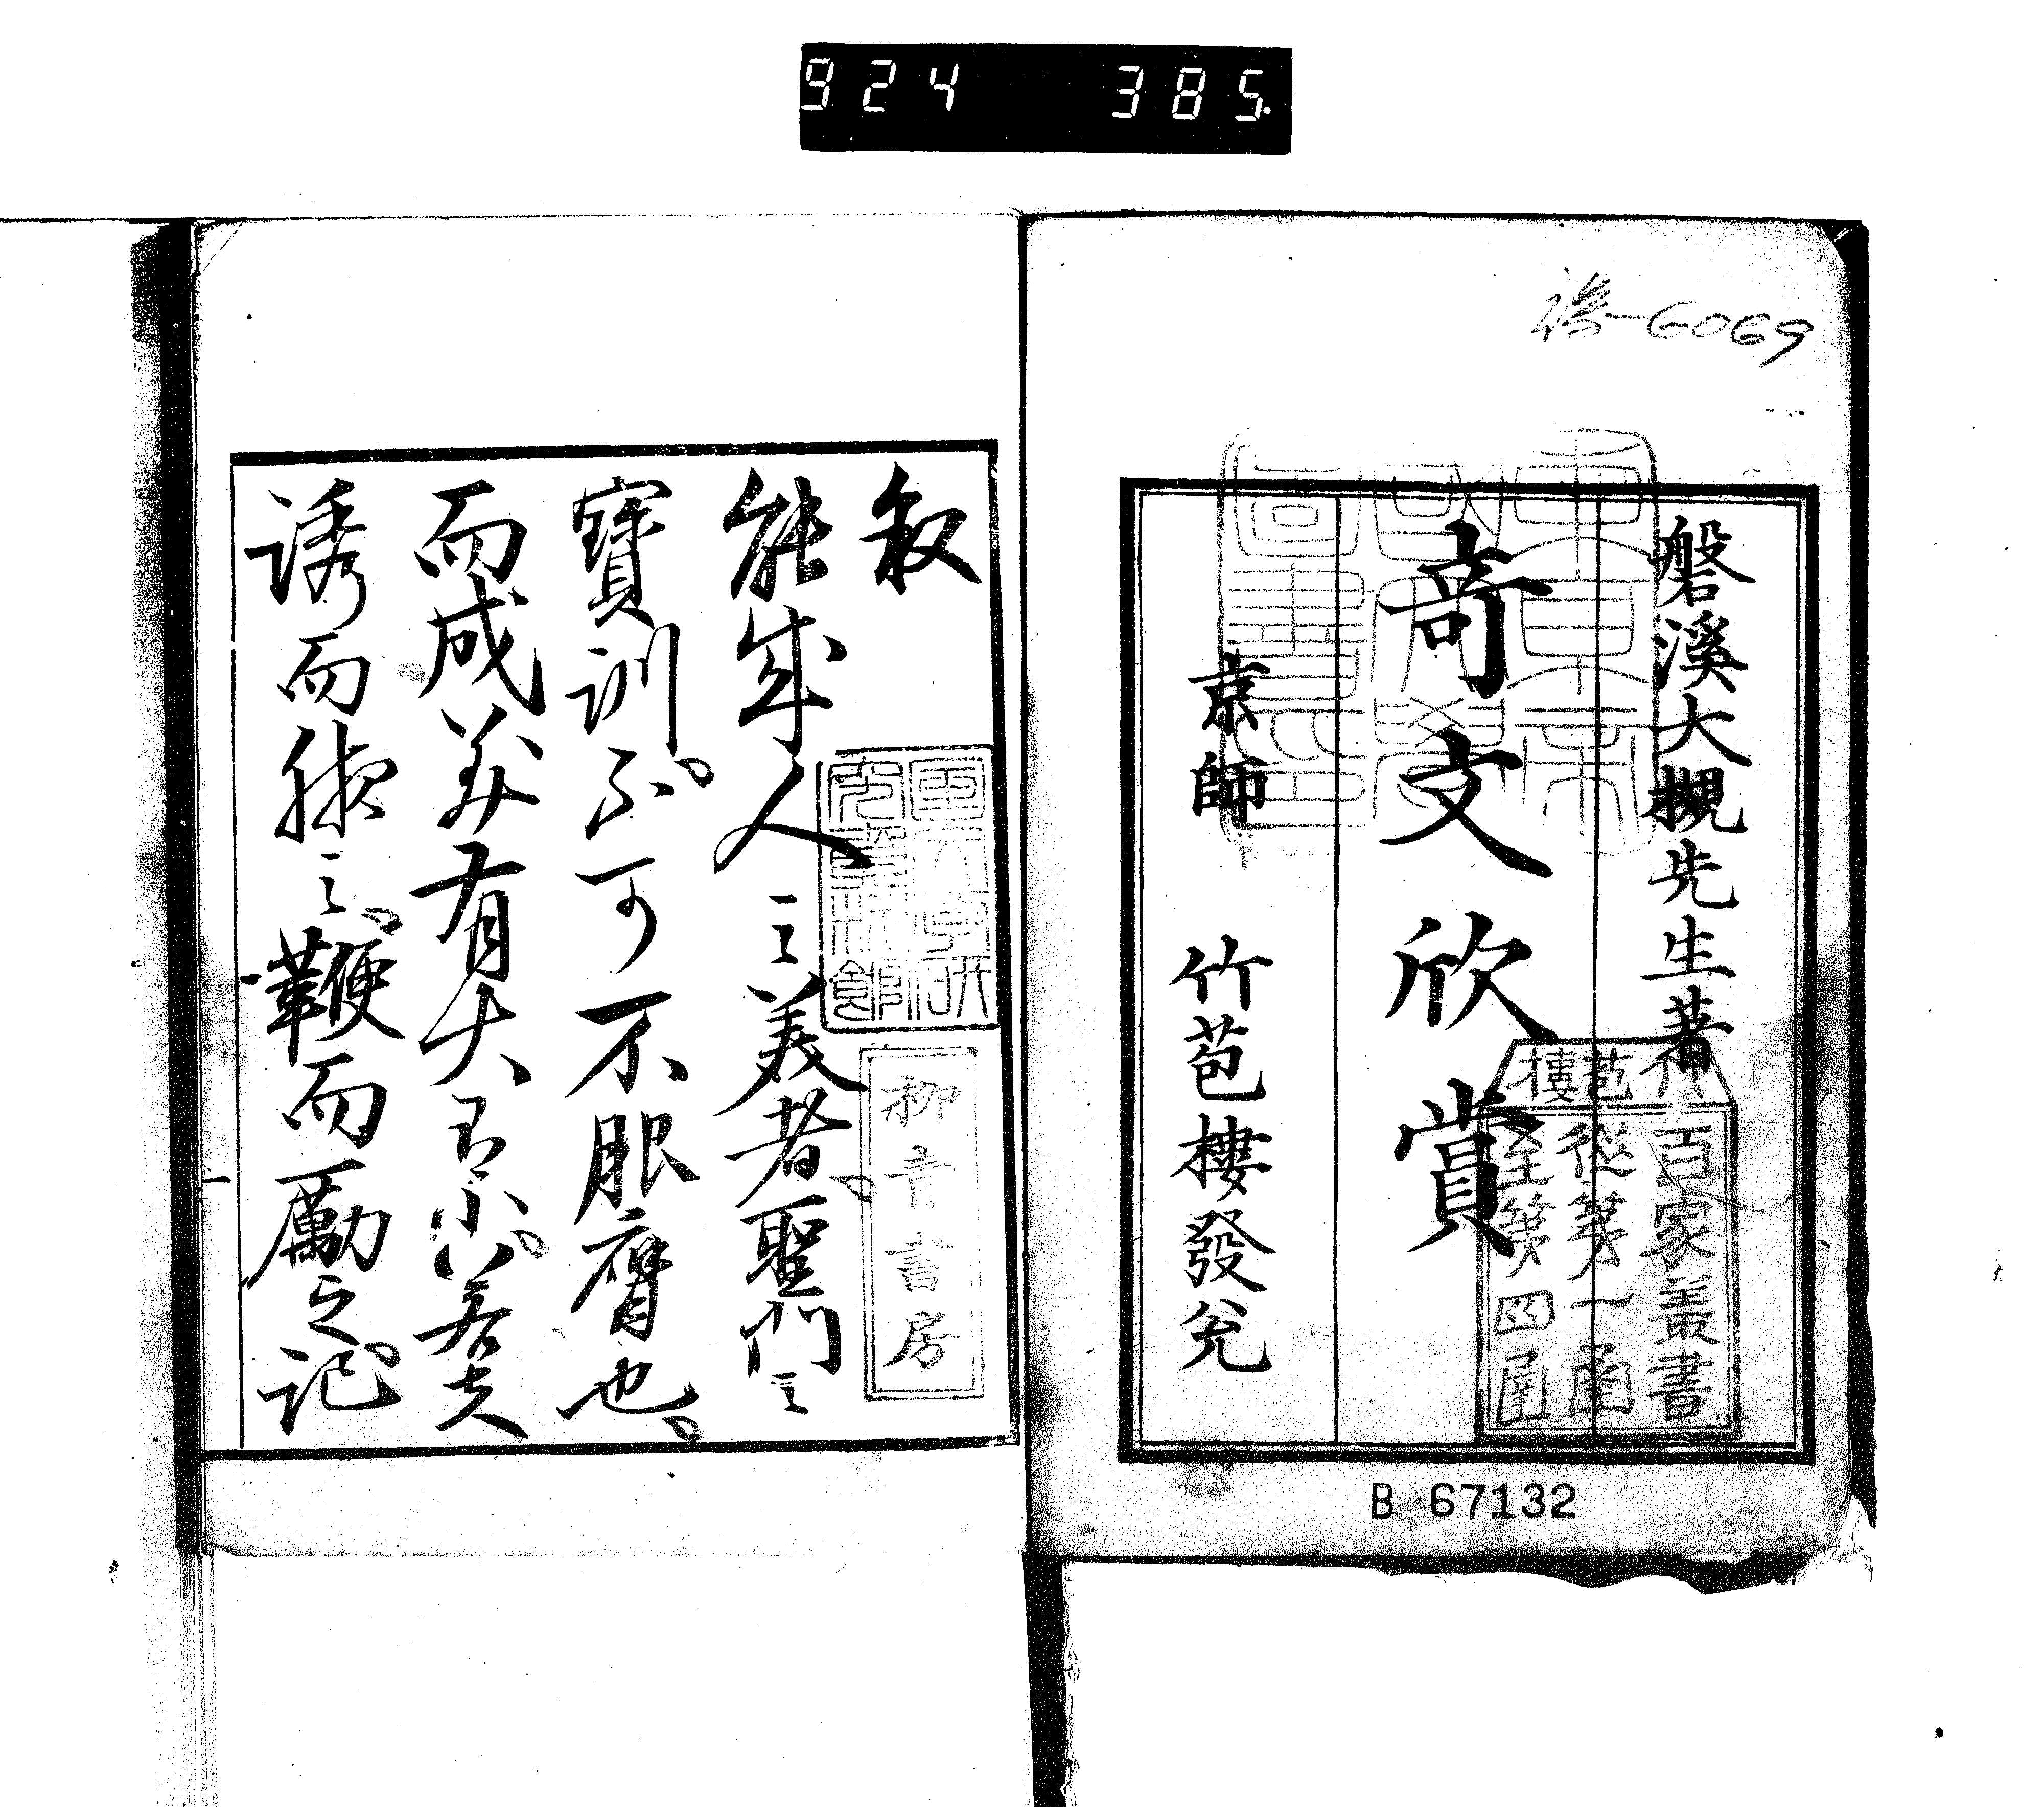 924 385.
磐溪大槻先生著
奇文欣賞
京師 竹苞樓發兌
竹苞樓
百家叢書
從第一函
至第四函
B 67132
6069
叙
能成人之美者聖門之
寶訓不可不服膺也
而成美有大有小若夫
誘而掖之鞭而勵之記
柳青書房